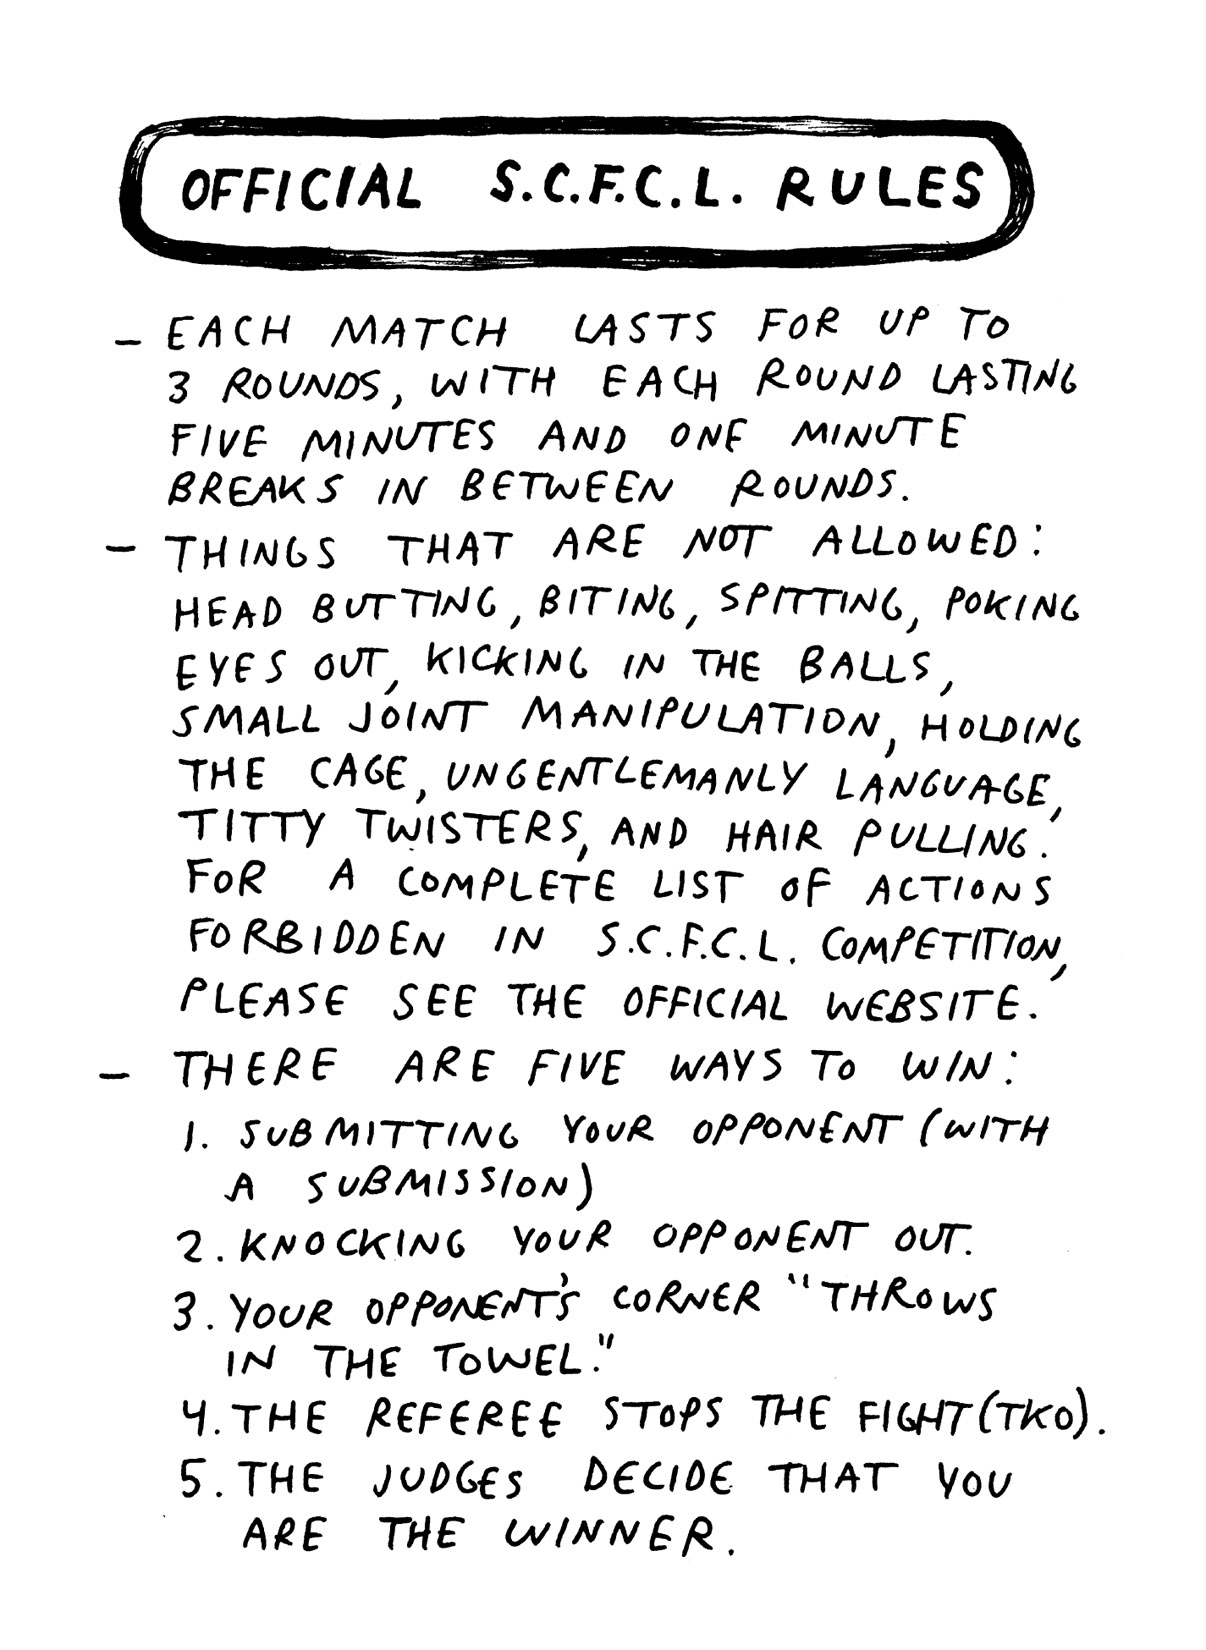 OFFICIAL S.C.F.C.L. RULES
- EACH MATCH LASTS FOR UP TO
3 ROUNDS, WITH EACH ROUND LASTING
FIVE MINUTES AND ONE MINUTE
BREAKS IN BETWEEN ROUNDS.
- THINGS THAT ARE NOT ALLOWED:
HEAD BUTTING, BITING, SPITTING, POKING
EYES OUT, KICKING IN THE BALLS,
SMALL JOINT MANIPULATION, HOLDING
THE CAGE, UNGENTLEMANLY LANGUAGE,
TITTY TWISTERS, AND HAIR PULLING.
FOR A COMPLETE LIST OF ACTIONS
FORBIDDEN IN S.C.F.C.L. COMPETITION,
PLEASE SEE THE OFFICIAL WEBSITE.
- THERE ARE FIVE WAYS TO WIN:
1. SUBMITTING YOUR OPPONENT (WITH
A SUBMISSION)
2. KNOCKING YOUR OPPONENT OUT.
3. YOUR OPPONENT'S CORNER "THROWS
IN THE TOWEL."
4. THE REFEREE STOPS THE FIGHT (TKO).
5. THE JUDGES DECIDE THAT YOU
ARE THE WINNER.